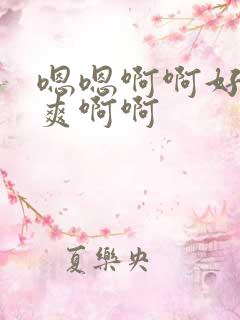 嗯嗯啊啊好
爽啊啊
夏樂央